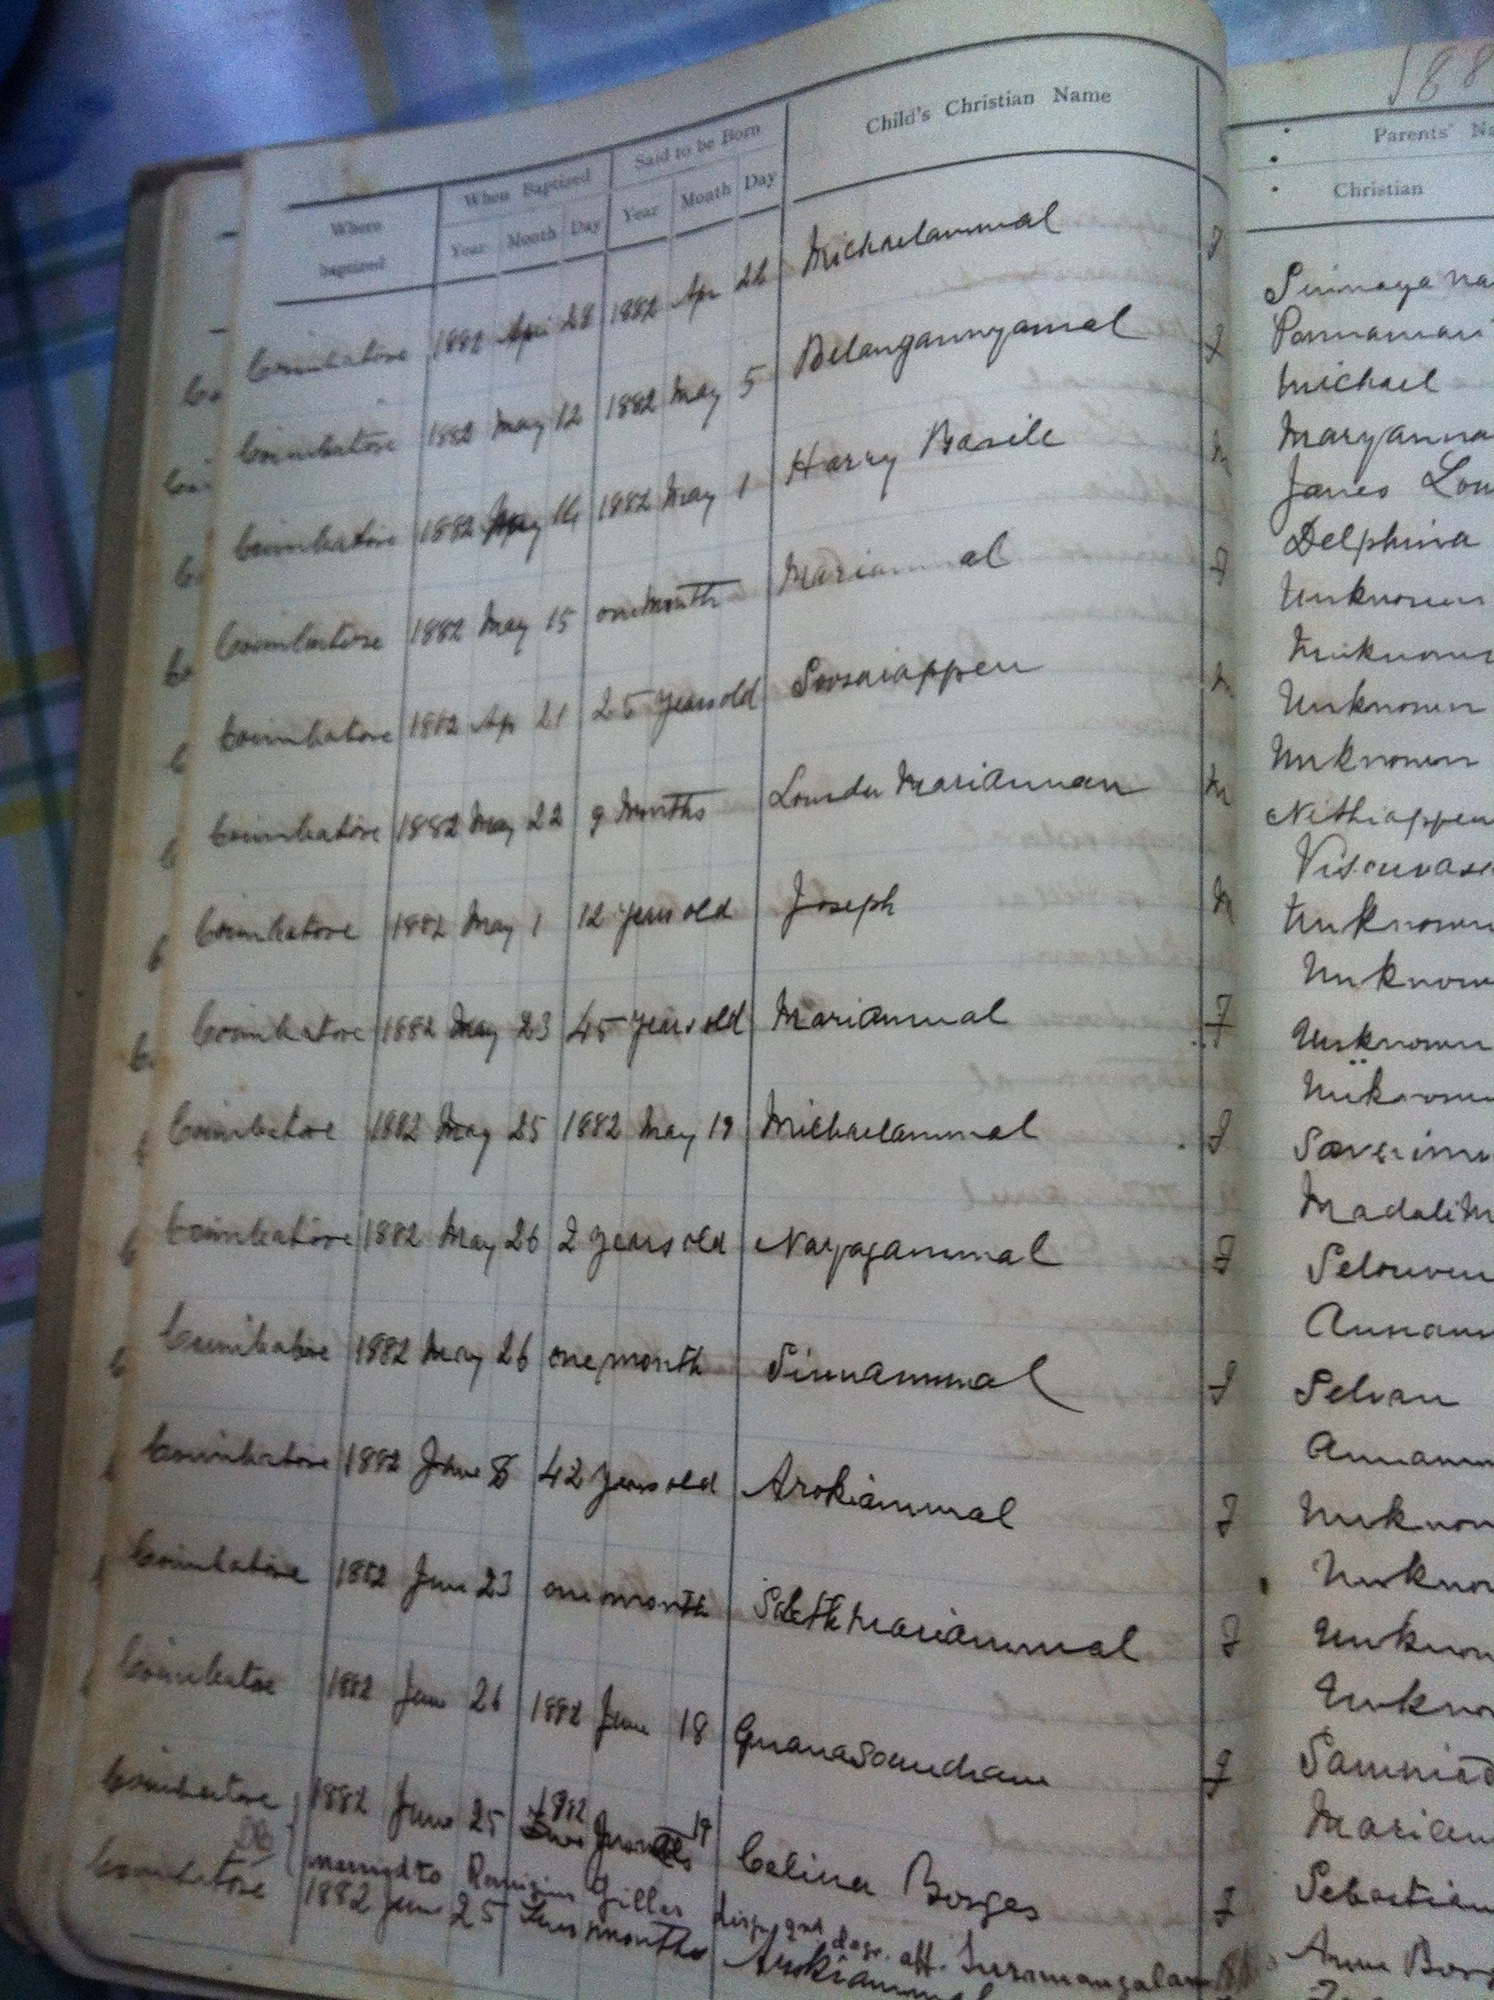 188
Where baptized
When Baptized
Year Month Day
Said to be Born
Year Month Day
Child's Christian Name
Parents' Na
Christian
Coimbatore 1882 Apr 28 1882 Apr 22 Michaelammal f
Coimbatore 1882 May 12 1882 May 5 Belangannyamal f
Coimbatore 1882 May 14 1882 May 1 Harry Basile m
Coimbatore 1882 May 15 one month Mariammal f
Coimbatore 1882 Apr 21 25 years old Soosaiappen m
Coimbatore 1882 May 22 9 Months Lourdu Mariannan m
Coimbatore 1882 May 1 12 years old Joseph m
Coimbatore 1882 May 23 45 years old Mariammal f
Coimbatore 1882 May 25 1882 May 19 Michaelammal f
Coimbatore 1882 May 26 2 years old Nayagammal f
Coimbatore 1882 May 26 one month Sinnammal f
Coimbatore 1882 June 42 years old Arokiammal f
Coimbatore 1882 June 23 one month mariammal f
Coimbatore 1882 June 26 1882 June 18 Gnanasoundram f
Coimbatore 1882 June 25 1882 June 19 Celina Borges f
married to Remigius Gilles disp. 2nd degr. aff.
Coimbatore 1882 June 25 months Arokiammal
Ponnamari
Michael
Maryanna
James Lou
Delphina
Unknown
Unknown
Unknown
Unknown
Nithiappen
Visuvas
Unknown
Unknown
Unknown
Unknown
Saverimu
MadaliM
Selouven
Annam
Selvan
Annam
Unknown
Unknow
Unknown
Unkno
Marian
Sebastian
Anna Borg